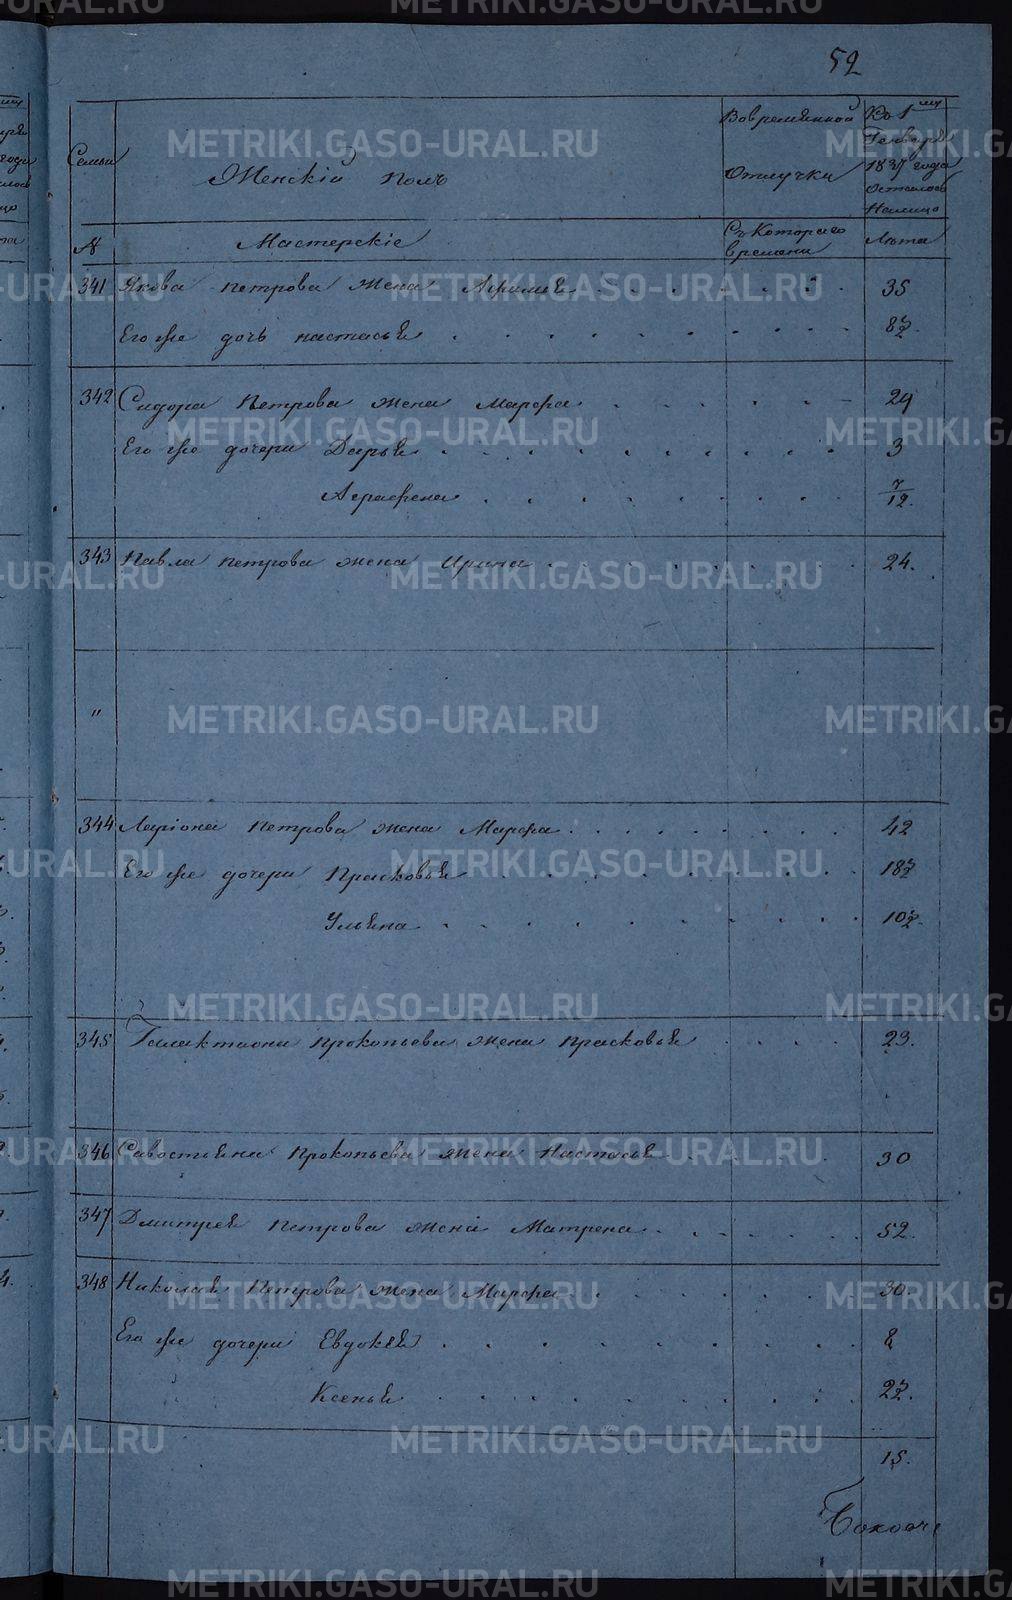 52
Семьи
Женскій полъ
Вовремянной Отлучки
Къ 1му Генваря 1837 года осталось Налицо
№
Мастерскіе
Съ Котораго времени
Лѣта
341 Якова петрова Жена 35
Его же дочь настасья 8½
342 Сидора Петрова жена Марфа 29
Его же дочери Дарья 3
Аграфена 7/12
343 Павла петрова жена Ирина 24.
"
344 Ларіона Петрова жена Марфа 42
Его же дочери Прасковья 18½
Ульяна 10½
345 Галактиона Прокопьева жена Прасковья 23.
346 Савостьяна Прокопьева жена Настасья 30
347 Дмитрея Петрова жена Матрена 52.
348 Николая Петрова жена Марфа 30
Его же дочери Евдокея 8
Ксенья 2½
15.
METRIKI.GASO-URAL.RU